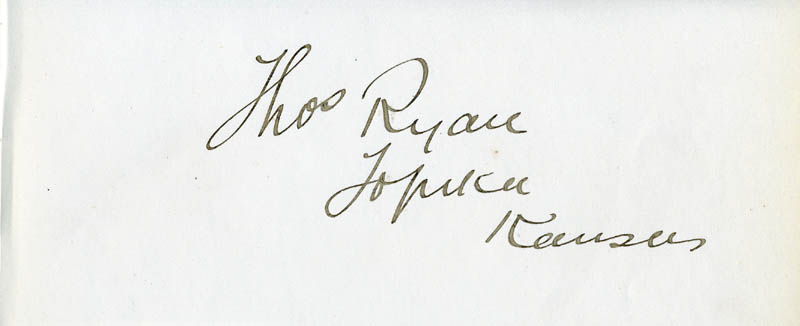 Thos Ryan
Topeka
Kansas